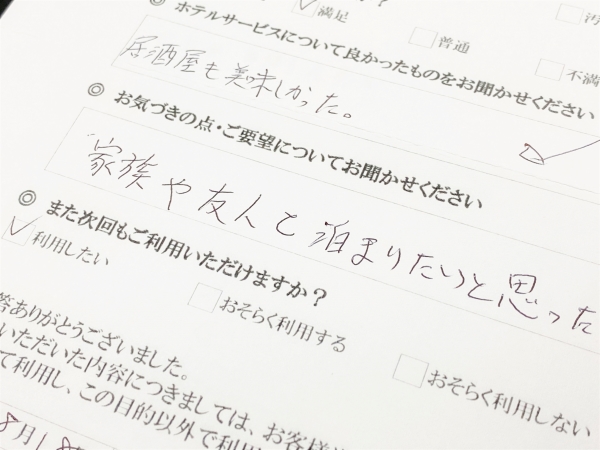 満足
普通
不満
汚
◎ ホテルサービスについて良かったものをお聞かせください
居酒屋も美味しかった。
◎ お気づきの点・ご要望についてお聞かせください
家族や友人と泊まりたいと思った
◎ また次回もご利用いただけますか?
利用したい
おそらく利用する
おそらく利用しない
答ありがとうございました。
いただいた内容につきましては、お客様
て利用し、この目的以外で利用
8月18